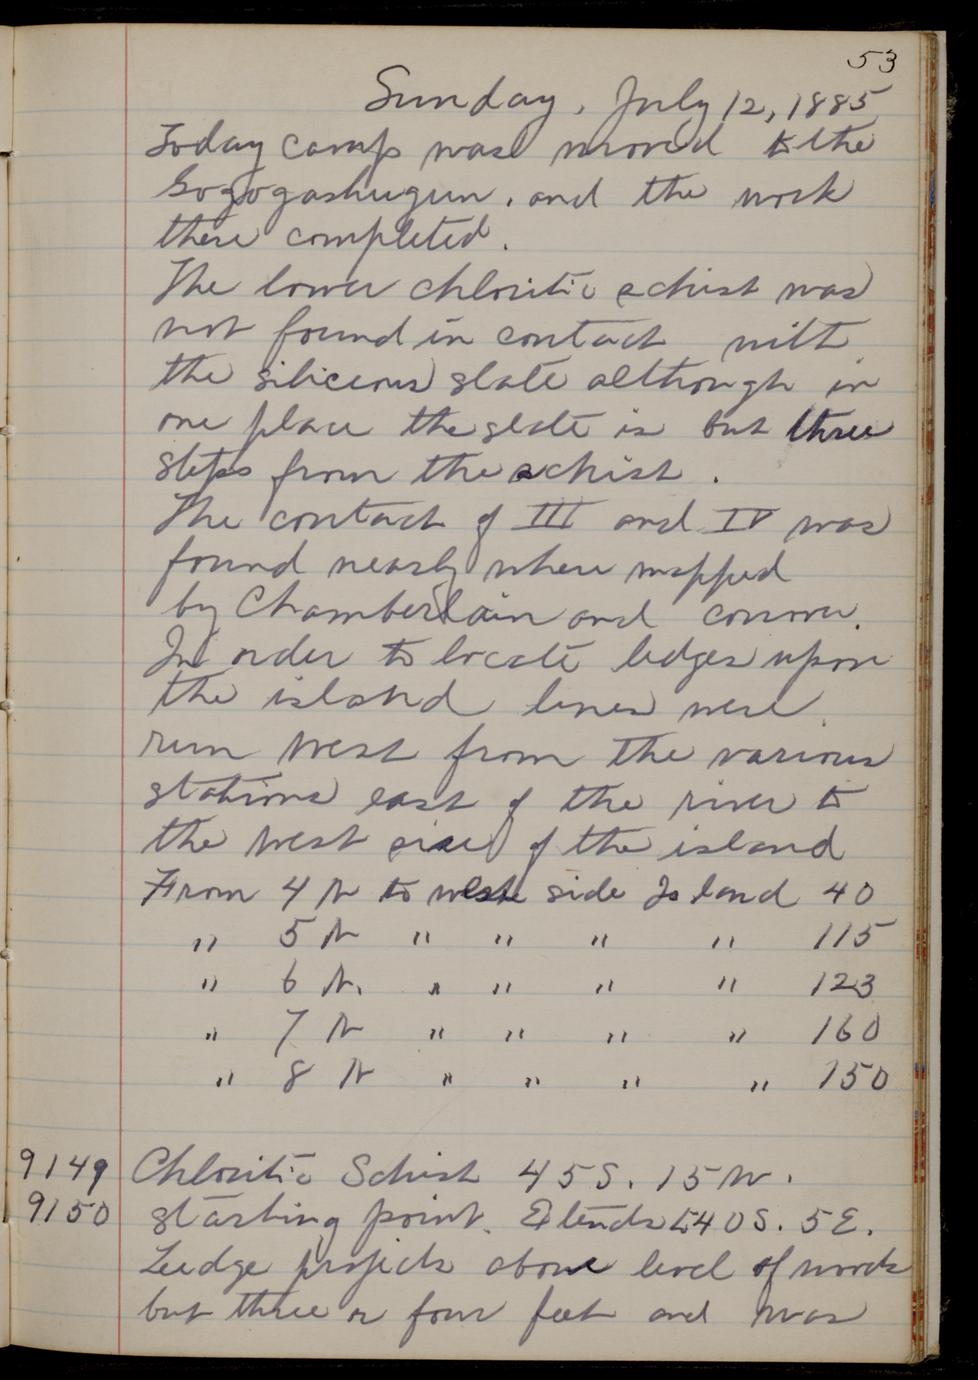 53
Sunday, July 12, 1885
Today camp was moved to the
Gogogashugun, and the work
there completed.
The lower chloritic schist was
not found in contact with
the siliceous slate although in
one place the slate is but three
steps from the schist.
The contact of III and IV was
found nearly where mapped
by Chamberlain and Conover.
In order to locate ledges upon
the island lines were
run West from the various
stations east of the river to
the West side of the island
From 4 N to west side Island 40
" 5 N " " " " 115
" 6 N. " " " " 123
" 7 N " " " " 160
" 8 N " " " " 150
9149 Chloritic Schist 45 S. 15 W.
9150 starting point. Extends 40 S. 5 E.
Ledge projects above level of woods
but three or four feet and was